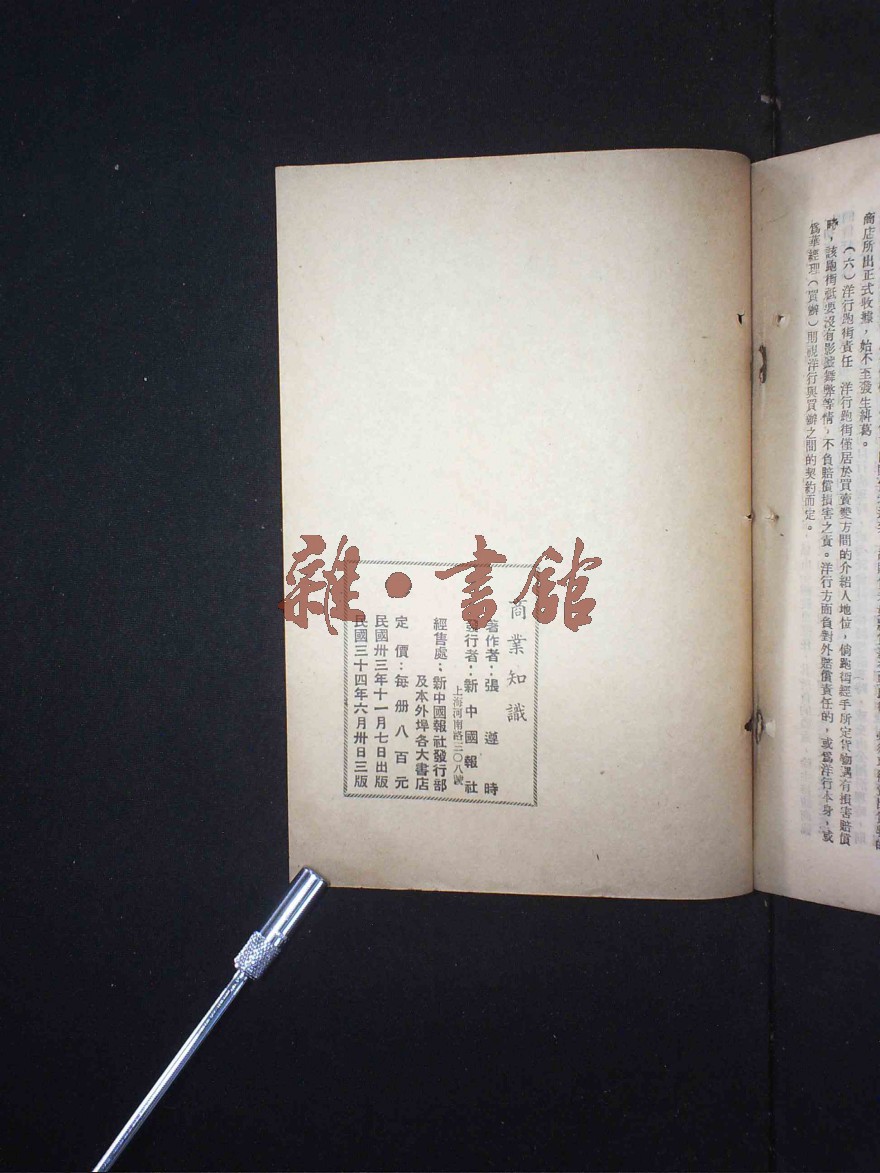 商店所出正式收據，始不至發生糾葛。
（六）洋行跑街責任　洋行跑街僅居於買賣雙方間的介紹人地位，倘跑街經手所定貨物遇有損害賠償
時，該跑街祇要沒有影戤舞弊等情，不負賠償損害之責。洋行方面負對外賠償責任的，或爲洋行本身，或
爲華經理（買辦）則視洋行與買辦之間的契約而定。
商業知識
著作者：張遵時
發行者：新中國報社
上海河南路三〇八號
經售處：新中國報社發行部
及本外埠各大書店
定價：每册八百元
民國卅三年十一月七日出版
民國三十四年六月卅日三版
雜·書館